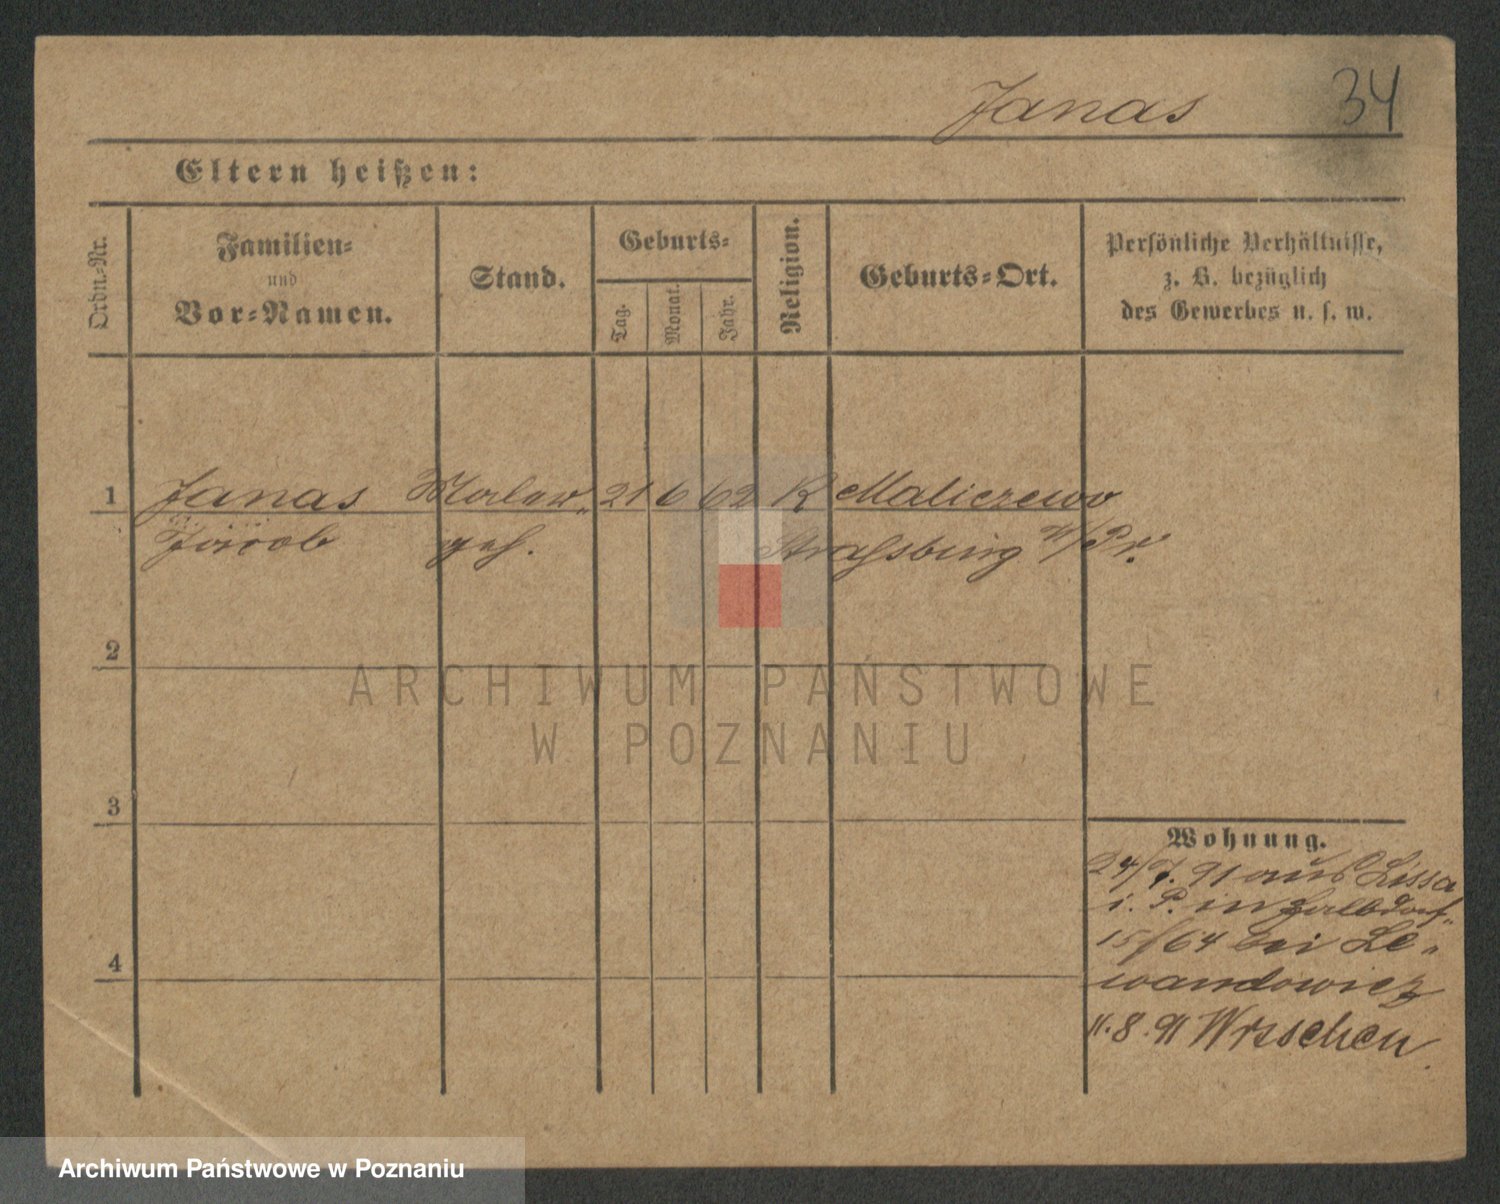 34
Janas
Eltern heißen:
Ordn.-Nr.
Familien-
und
Vor-Namen.
Stand.
Geburts-
Tag.
Monat.
Jahr.
Religion.
Geburts-Ort.
Persönliche Verhältnisse,
z. B. bezüglich
des Gewerbes u. s. w.
1 Janas Maler 21 6 62 K Maliczewo
Jacob geh. Strassburg W/Pr.
2
3
4
Wohnung.
24/7. 91 aus Lissa
i. P. in Halbdorf-
15/64 bei Le-
wandowicz
11.8.91 Wreschen
ARCHIWUM PAŃSTWOWE
W POZNANIU
Archiwum Państwowe w Poznaniu